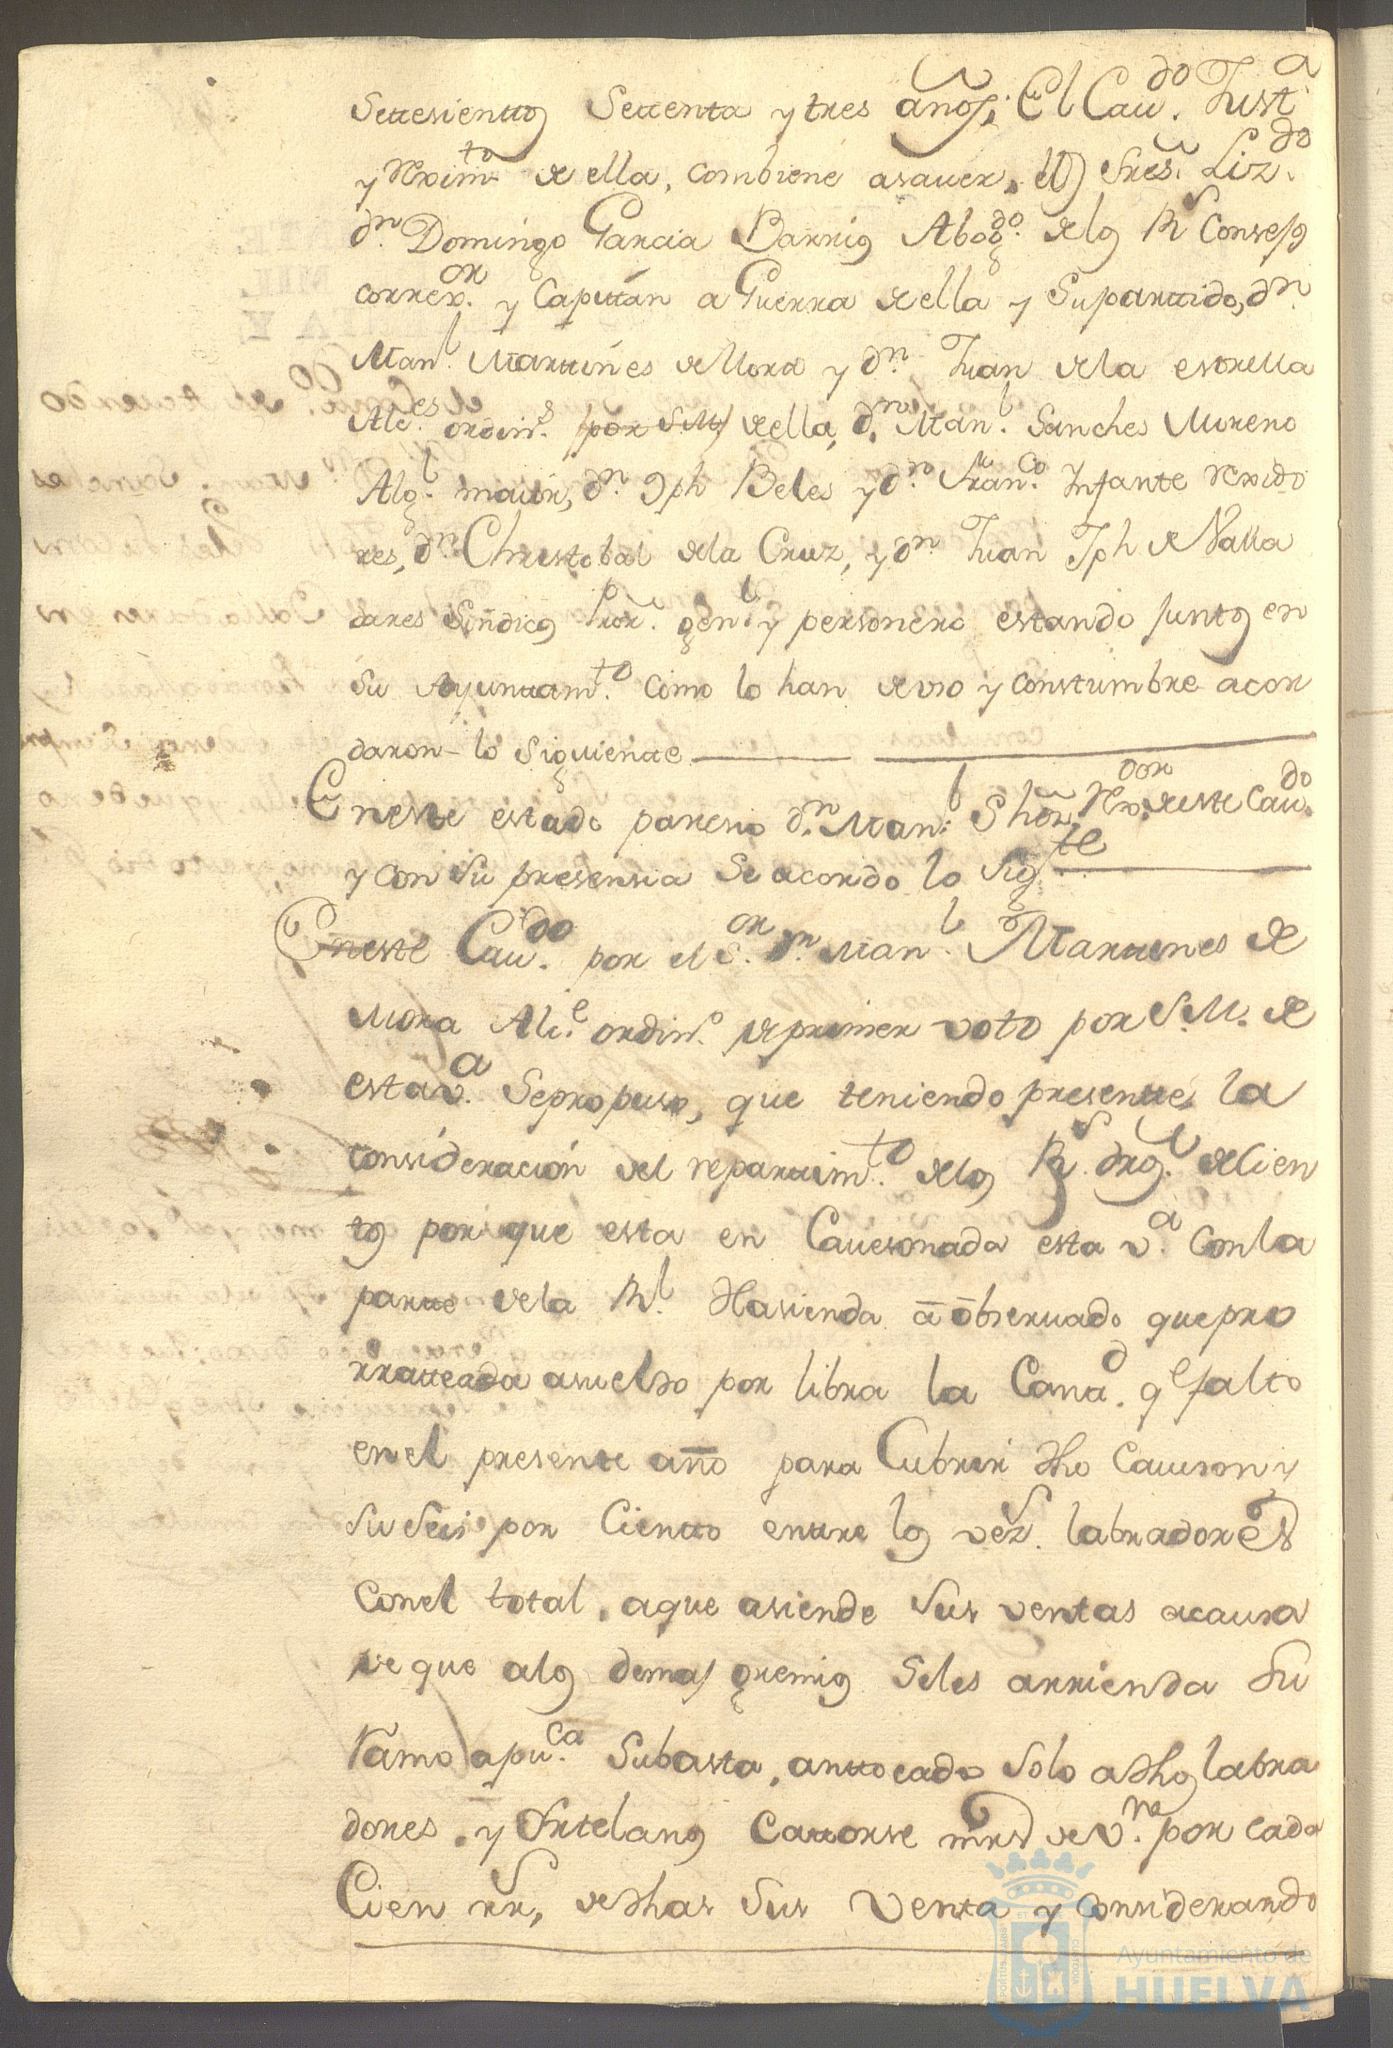 Settesientos Settenta y tres años; El Cau.do Just.a
y Reximto de ella, combiene asauer, los Sres. Liz.do
dn. Domingo Garcia Barrios Abogdo. de los Rs Consejos
correx.or y Capitán a Guerra de ella y su partido, dn.
Manl. Martines de Mora y dn. Juan de la estrella
Alc.es ordin.s por S.M. de ella, dn. Manl. Sanches Moreno
Algl. maior, dn. Jph Beles y dn. Franco. Infante rexido
res, dn. Christobal de la Cruz, y dn. Juan Jph de Valla
dares Sindicos Pror. genl. y personero estando juntos en
su Ayuntam.to como lo han de uso y constumbre acor
daron lo siguiente
En este estado paresio dn. Manl. Shõr. Rexdor. de este Caudo.
y con su presensia se acordo lo Sig.te
En este Caudo. por el S.or dn. Manl. Martines de
Mora Alc.e ordin.o de primer voto por S.M. de
esta v.a se propuso, que teniendo presente la
consideración del repartim.to de los Rs. drõs. de Cien
tos por que esta en Cauesonada esta v.a con la
parte de la Rl. Hasienda ã õbseruado que pro
rrateada a sueldo por libra la Cantd. qe falto
en el presente año para Cubrir dho Caueson y
su seis por Ciento entre los vez.s labradores
con el total, a que asiende sus ventas a causa
de que a los demas gremios se les arrienda su
ramo a pu.ca Subasta, an tocado solo a dhos labra
dores, y Ortelanos Catorse mrs de v.ne por cada
Cien rr.s, de dhas sus Venta y considerando
Ayuntamiento de
HUELVA